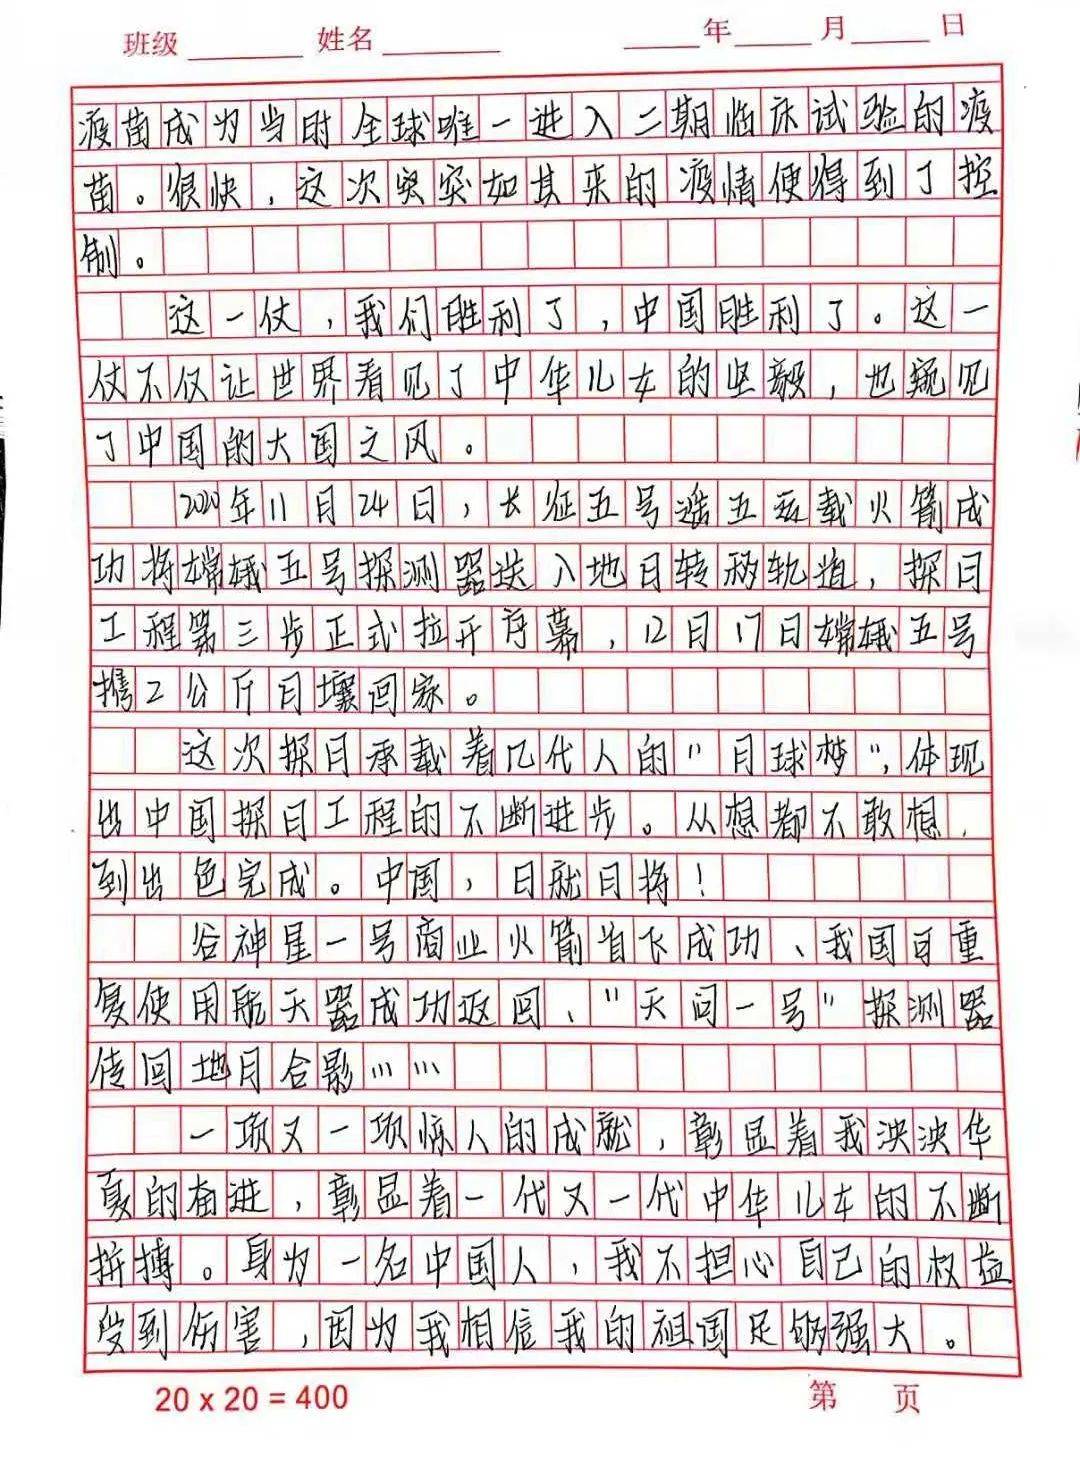 班级 姓名 年 月 日
疫苗成为当时全球唯一进入二期临床试验的疫
苗。很快，这次突突如其来的疫情便得到了控
制。
这一仗，我们胜利了，中国胜利了。这一
仗不仅让世界看见了中华儿女的坚毅，也窥见
了中国的大国之风。
2020年11月24日，长征五号遥五运载火箭成
功将嫦娥五号探测器送入地月转移轨道，探月
工程第三步正式拉开序幕，12月17日嫦娥五号
携2公斤月壤回家。
这次探月承载着几代人的"月球梦"，体现
出中国探月工程的不断进步。从想都不敢想，
到出色完成。中国，日就月将！
谷神星一号商业火箭首飞成功、我国可重
复使用航天器成功返回、"天问一号"探测器
传回地月合影……
一项又一项惊人的成就，彰显着我泱泱华
夏的奋进，彰显着一代又一代中华儿女的不断
拼搏。身为一名中国人，我不担心自己的权益
受到伤害，因为我相信我的祖国足够强大。
20 x 20 = 400 第 页